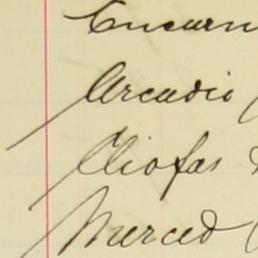 Encarn
Arcadio
Cliofas
Merced